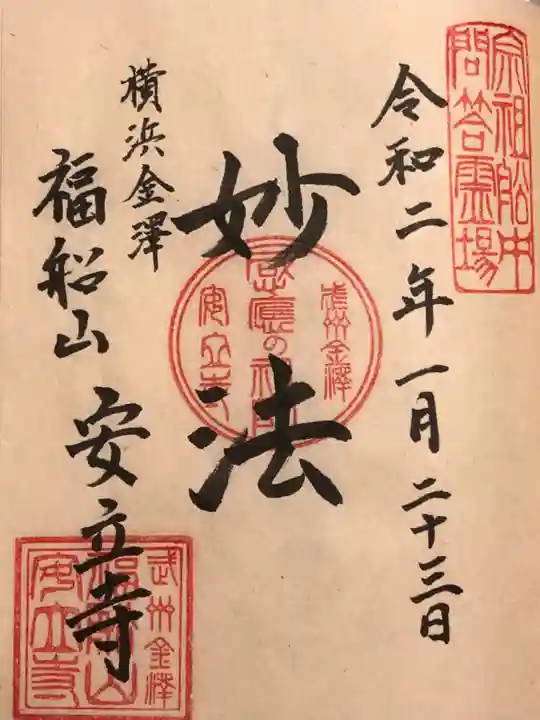 宗祖船中
問答霊場
令和二年一月二十三日
妙法
武州金澤
感應の祖師
安立寺
横浜金澤
福船山
安立寺
武州金澤
福船山
安立寺